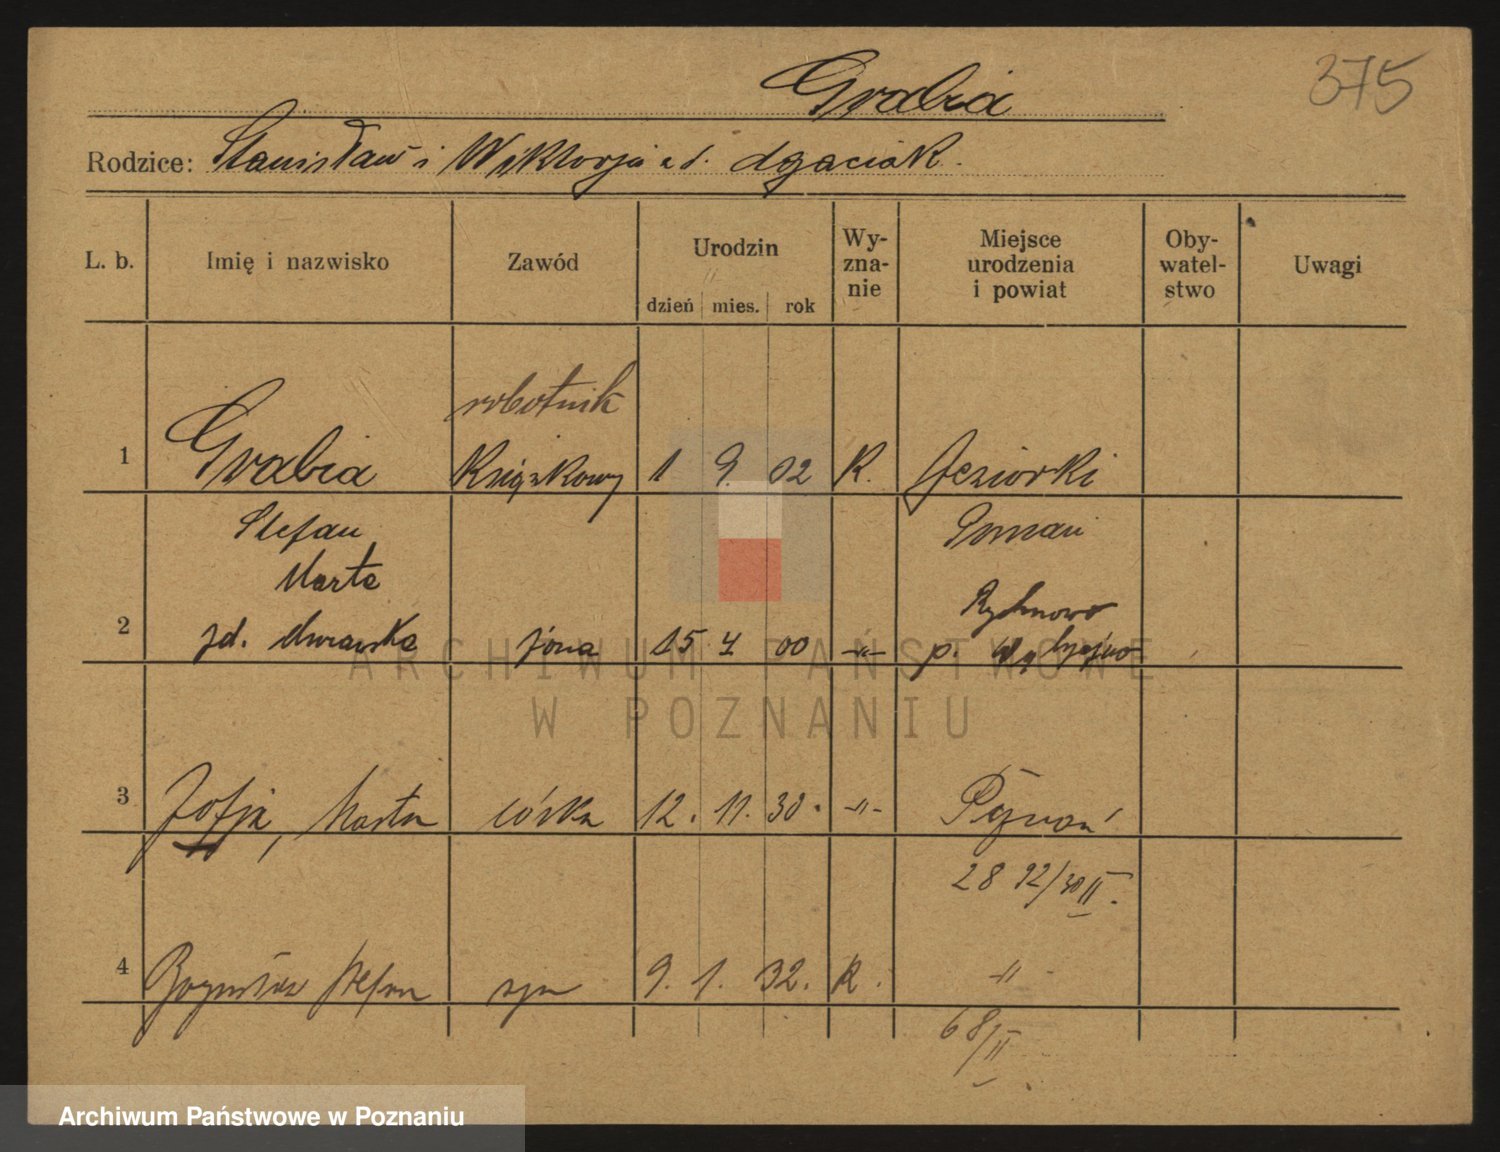 375
Grabia
Rodzice: Stanisław i Wiktorja z d.
L. b. Imię i nazwisko Zawód Urodzin Wy-zna-nie Miejsce urodzenia i powiat Oby-watel-stwo Uwagi
dzień mies. rok
robotnik
1 Grabia Książkowy 1 9 02 K. Jeziorki
Stefan Poznań
Marta
2 zd. Murawska żona 15 4 00 -"-
p. Wągrówiec
3 Zofja, Marta córka 12. 11. 30. -"- Poznań
28 92/30 II.
4 Bogusław Stefan syn 9. 1. 32. K. -"-
68/II
ARCHIWUM PAŃSTWOWE
W POZNANIU
Archiwum Państwowe w Poznaniu